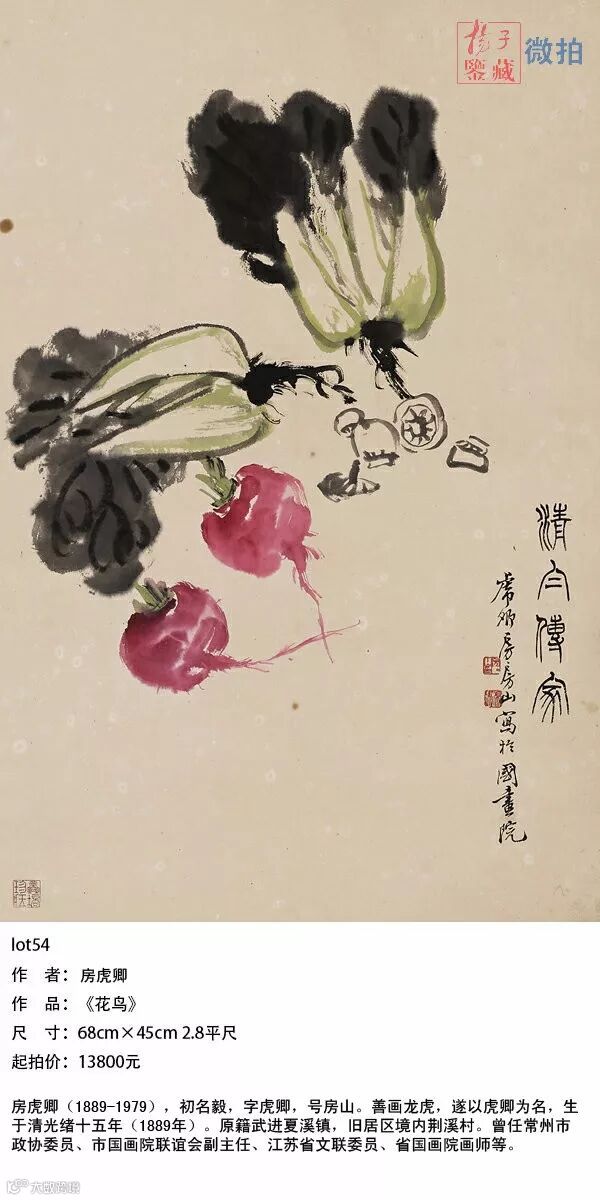 杨子
鉴藏
微拍
清白傳家
虎卿房房山寫於國畫院
lot54
作 者：房虎卿
作 品：《花鸟》
尺 寸：68cm×45cm 2.8平尺
起拍价：13800元
房虎卿（1889-1979），初名毅，字虎卿，号房山。善画龙虎，遂以虎卿为名，生
于清光绪十五年（1889年）。原籍武进夏溪镇，旧居区境内荆溪村。曾任常州市
政协委员、市国画院联谊会副主任、江苏省文联委员、省国画院画师等。
大数跨境